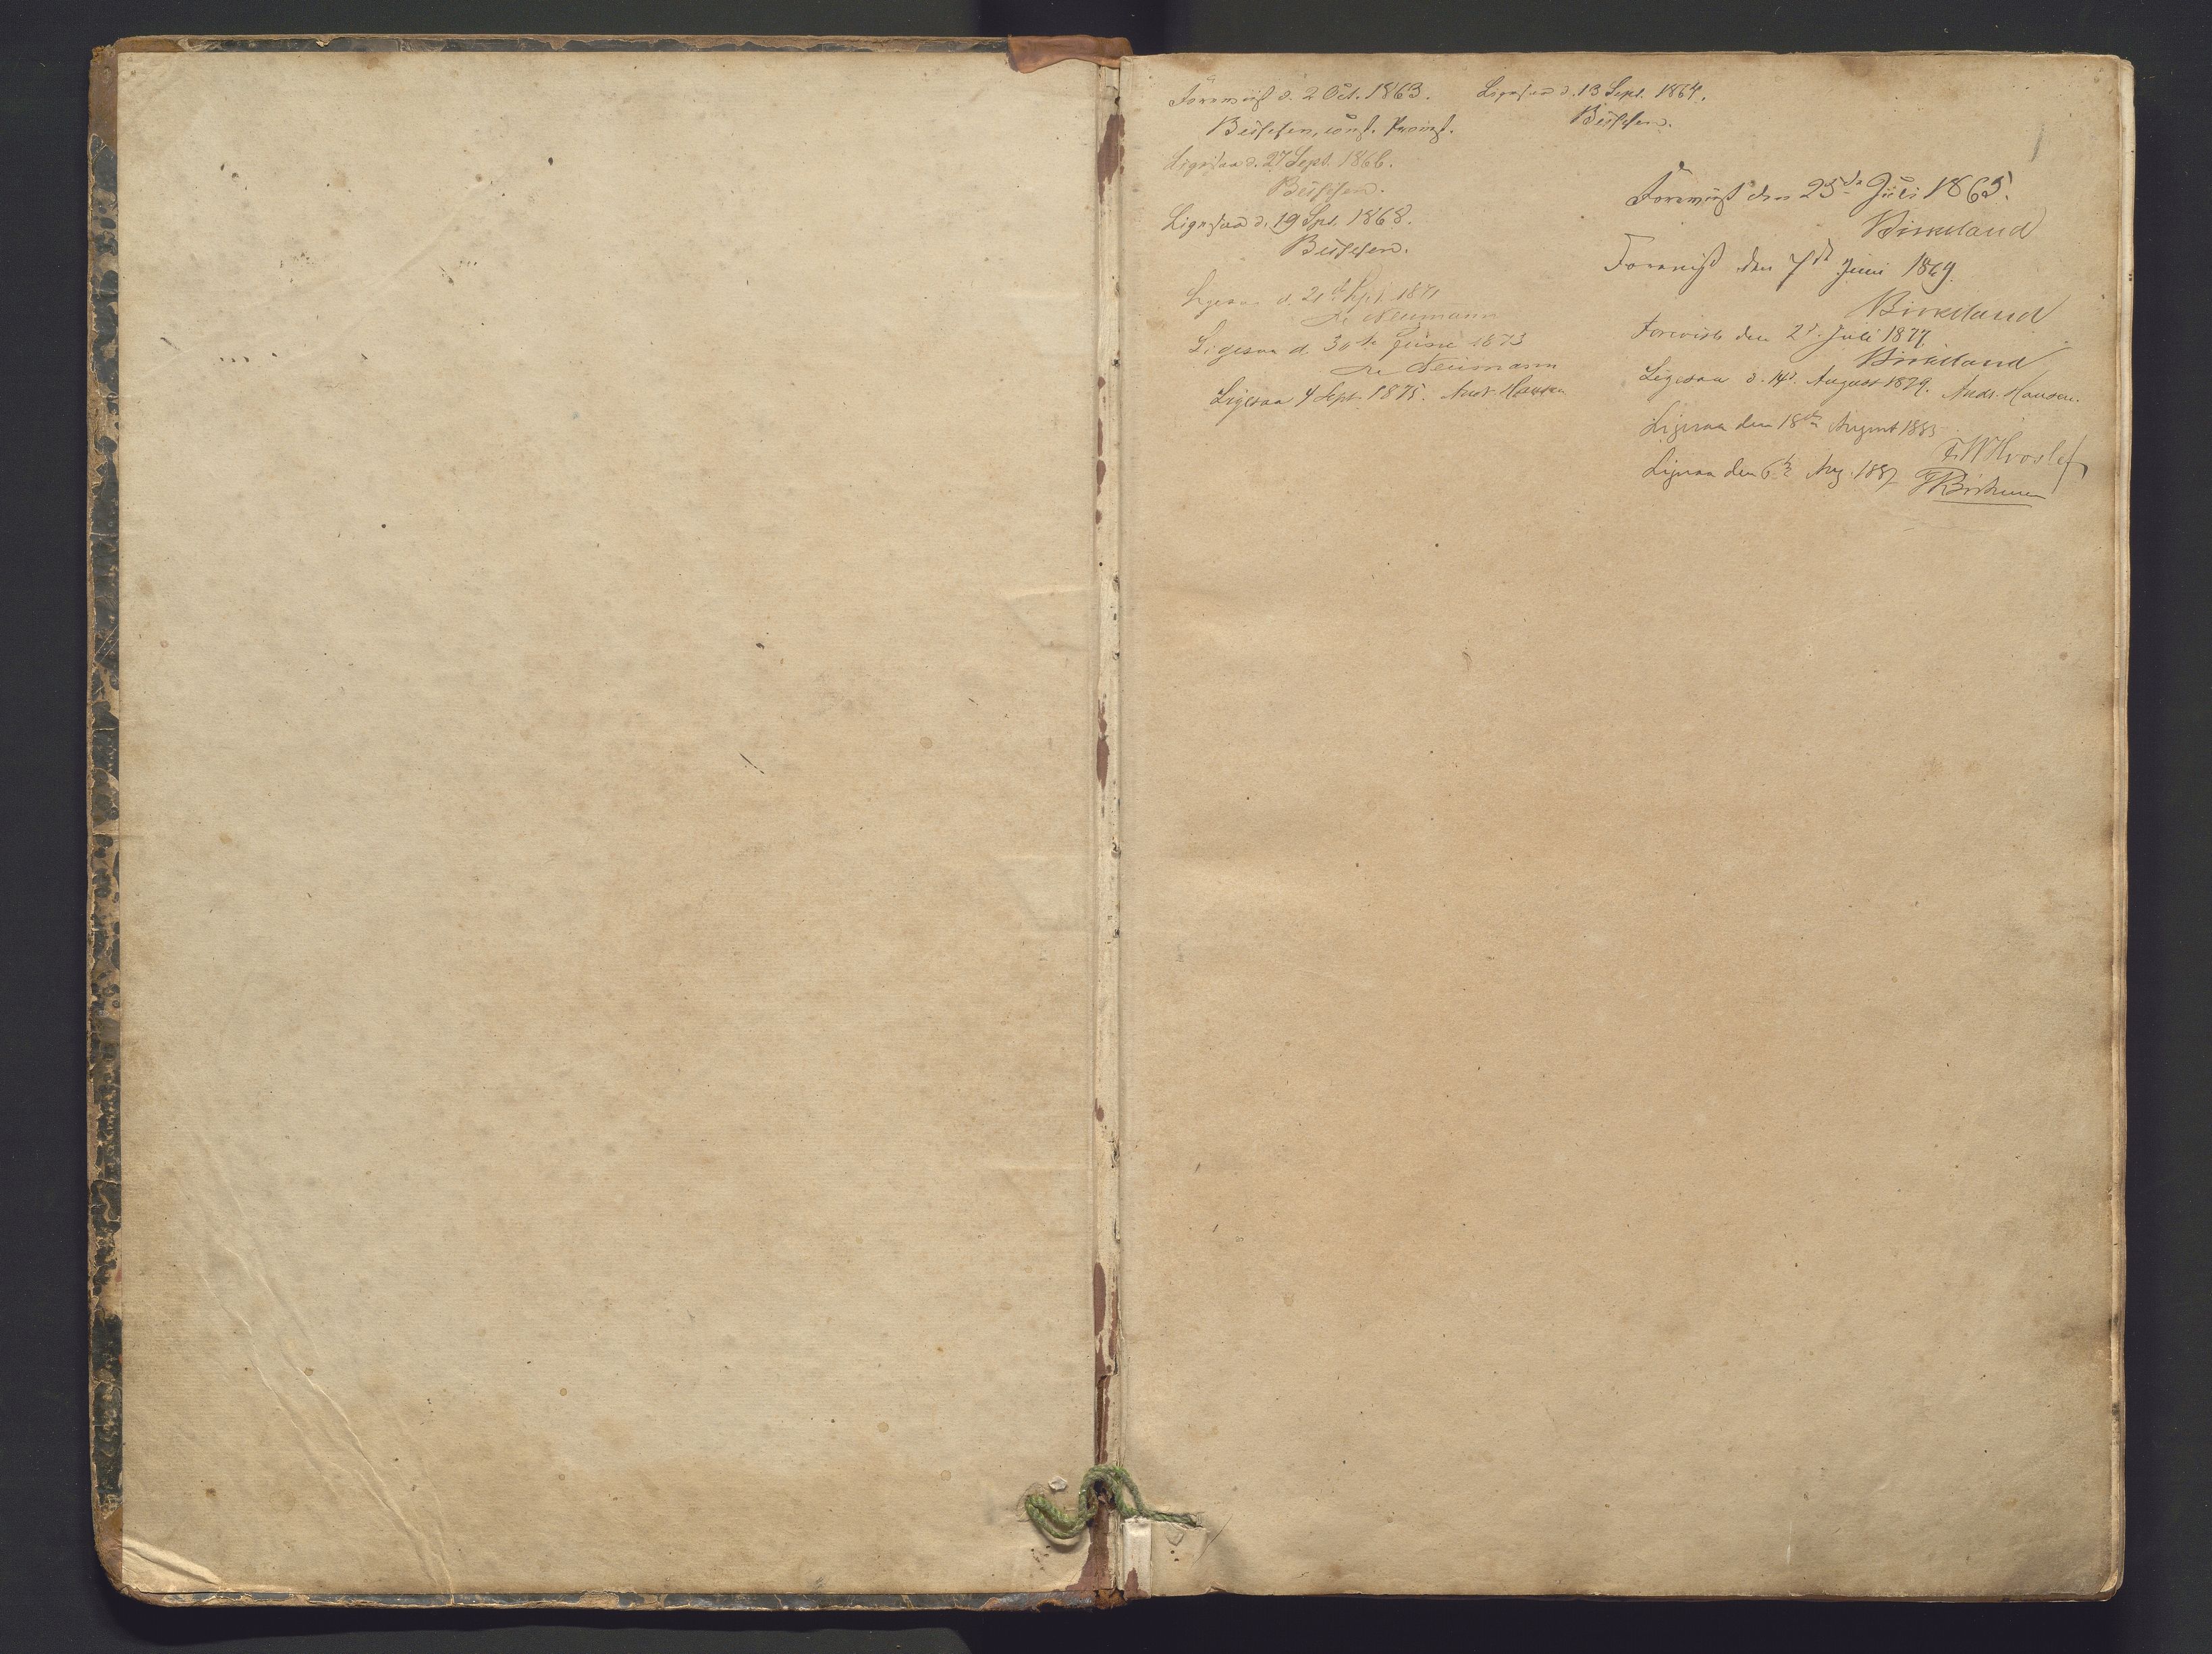 Foreviist d. 2 Oct. 1863.
const. Provst.
Ligesaa d. 13 Sept. 1864.
Ligesaa d. 27 Sept. 1866.
Ligesaa d. 19 Spt. 1868.
Ligesaa d. 21de Spt. 1871
Neumann
Ligesaa d. 30te Juni 1873
Neumann
Ligesaa 4 Sept. 1875. Andr. Hansen
Foreviist den 25de Juli 1865.
Birkeland
Foreviist den 7de Juni 1869
Birkeland
Foreviist den 2d. Juli 1877.
Birkeland
Ligesaa d. 14d. August 1879. Andr. Hansen.
Ligesaa den 18de August 1883
F W Hvoslef
Ligesaa den 6te Aug. 1887